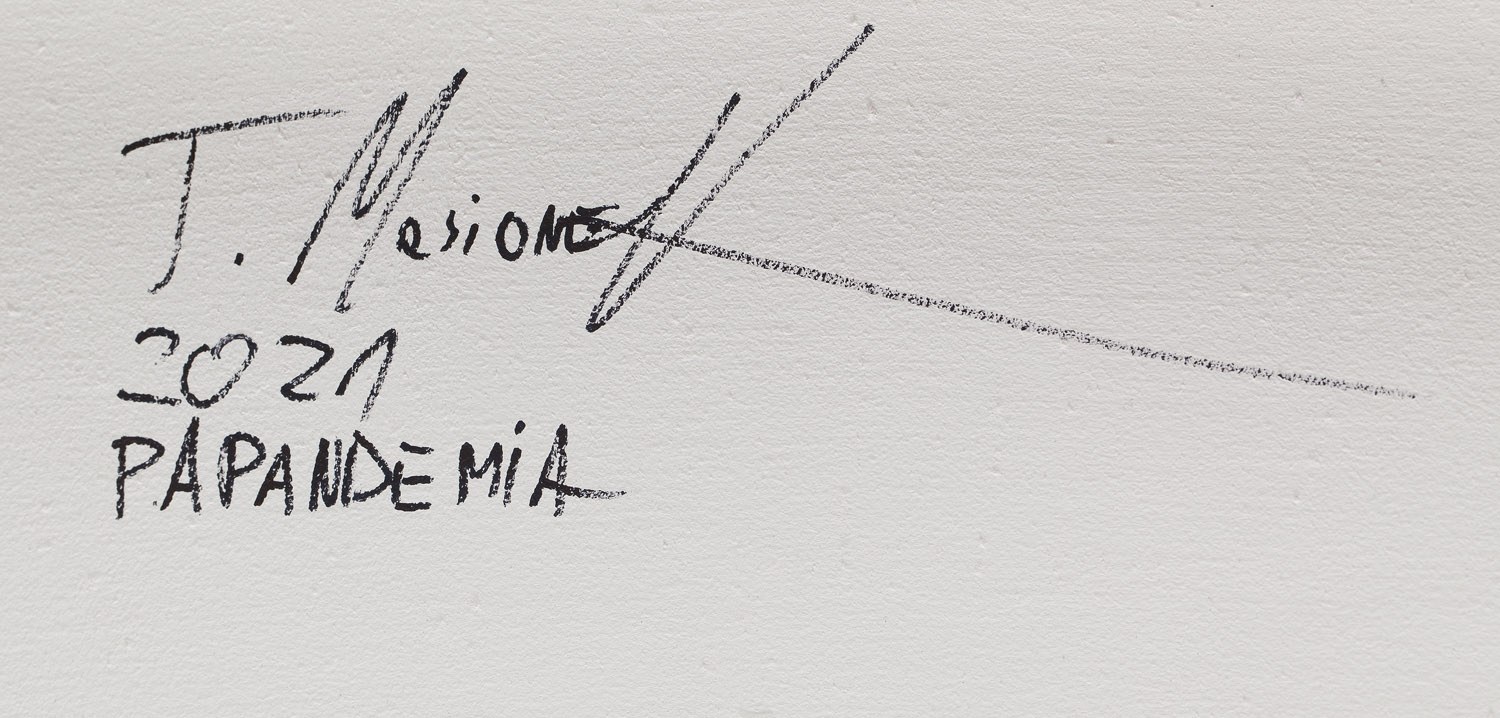 T. Masionek
2021
PAPANDEMiA